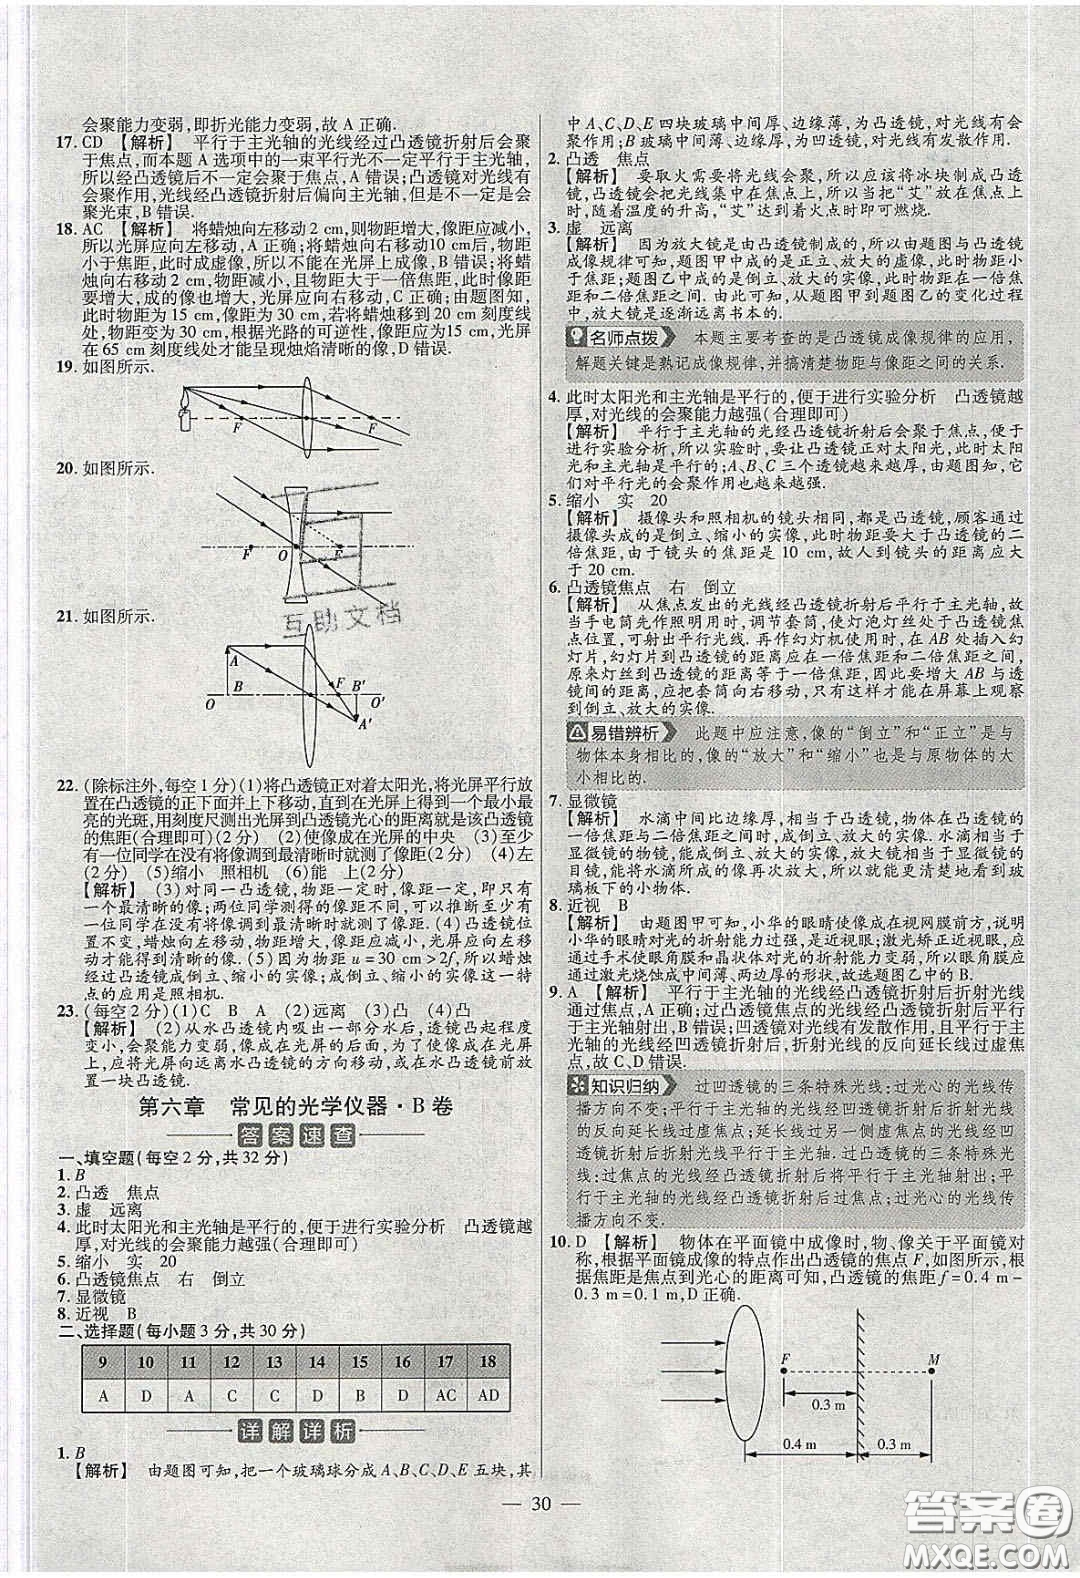 会聚能力变弱,即折光能力变弱,故 A 正确.
17. CD 【解析】 平行于主光轴的光线经过凸透镜折射后会聚
于焦点,而本题 A 选项中的一束平行光不一定平行于主光轴,
所以经过凸透镜后不一定会聚于焦点,A 错误;凸透镜对光线有
会聚作用,光线经凸透镜折射后偏向主光轴,但折射光不一定是会
聚光束,B 错误.
18. AC 【解析】 将蜡烛向左移动 2 cm,则物距增大,像距应减小,
所以光屏应向左移动,A 正确;将蜡烛向右移动10 cm,物距
小于焦距,此时成虚像,所以不能在光屏上成像,B 错误;将
蜡烛向右移动 2 cm,物距减小,且大于一倍焦距,此时像距
要增大,成的像也增大,光屏应向右移动,C 正确;由题图知,
此时物距为 15 cm,像距为 30 cm,若将蜡烛移动到20 cm刻度线
处,物距变为 30 cm,根据光路的可逆性,像距为15 cm,光屏
在 65 cm 刻度线处才能呈现烛焰清晰的像,D 错误.
19. 如图所示.
F
F
20. 如图所示.
F
O
F
21. 如图所示.
互助文档
A
O
B
F
B′
O′
A′
22. (除标注外,每空 1 分)(1)将凸透镜正对着太阳光,将光屏平行放
置在凸透镜的正下面并上下移动,直到在光屏上得到一个最小最
亮的光斑,用刻度尺测出光屏到凸透镜光心的距离就是该凸透镜
的焦距(合理即可)(2 分) (2)使像成在光屏的中央 (3)至少
有一位同学在没有将像调到最清晰时就测量了像距(2分) (4)左
(2 分) (5)缩小 照相机 (6)能 上(2 分)
【解析】 (3)对同一凸透镜,物距一定时,像距一定,且只有一
个最清晰的像;两位同学测得的像距不同,可能是至少有一
位同学在没有将像调到最清晰时就测量了像距. (4) 凸透镜
位置不变,蜡烛向左移动,物距增大,像距减小,光屏应向左移
动才能得到清晰的像. (5) 因为物距 u = 30 cm > 2f,所以蜡烛
经过凸透镜成倒立、缩小的实像;成倒立、缩小的实像这一特
点的应用是照相机.
23. (每空 2 分)(1)C B A (2)远离 (3)凸 (4)凸
【解析】 (2)从水凸透镜内吸出一部分水后,透镜凸起程度
变小,会聚能力变弱,像成在光屏的后面,为了使像成在光屏
上,光屏应向远离水凸透镜的方向移动,或者在水凸透镜前放
置一块凸透镜.
第六章 常见的光学仪器·B 卷
答案速查
一、填空题(每空 2 分,共 32 分)
1. B
2. 凸透 焦点
3. 虚 远离
4. 此时太阳光和主光轴是平行的,便于进行实验分析 凸透镜越
厚,对光线的会聚能力越强(合理即可)
5. 缩小 实 20
6. 凸透镜焦点 右 倒立
7. 显微镜
8. 近视 B
二、选择题(每小题 3 分,共 30 分)
9 10 11 12 13 14 15 16 17 18
A D A C C D B D AC AD
详解详析
1. B
【解析】 由题图可知,把一个玻璃球分成 A、B、C、D、E 五块,其
中 A、C、D、E 四块玻璃中间厚、边缘薄,为凸透镜,对光线有会
聚作用;B 玻璃中间薄、边缘厚,为凹透镜,对光线有发散作用.
2. 凸透 焦点
【解析】 要取火需要将光线会聚,所以应该将冰块制成凸透
镜,凸透镜会把光线集中在焦点上,所以当把“艾”放在焦点上
时,随着温度的升高,“艾”达到着火点时即可燃烧.
3. 虚 远离
【解析】 因为放大镜是由凸透镜制成的,所以由题图与凸透镜
成像规律可知,题图甲中成的是正立、放大的虚像,此时物距小
于焦距;题图乙中成的是倒立、放大的实像,此时物距在一倍焦
距和二倍焦距之间. 由此可知,从题图甲到题图乙的变化过程
中,放大镜是逐渐远离书本的.
名师点拨 本题主要考查的是凸透镜成像规律的应用,
解题关键是熟记成像规律,并搞清楚物距与像距之间的关系.
4. 此时太阳光和主光轴是平行的,便于进行实验分析 凸透镜越
厚,对光线的会聚能力越强(合理即可)
【解析】 平行于主光轴的光经凸透镜折射后会聚于焦点,便于
进行实验分析,所以实验时,要让凸透镜正对太阳光,此时太阳
光和主光轴是平行的;A、B、C 三个透镜越来越厚,由题图知,它
们对光的会聚作用也越来越强.
5. 缩小 实 20
【解析】 摄像头和照相机的镜头相同,都是凸透镜,顾客通过
摄像头成的是倒立、缩小的实像,此时物距要大于凸透镜的二
倍焦距,由于镜头的焦距是 10 cm,故人到镜头的距离应大
于 20 cm.
6. 凸透镜焦点 右 倒立
【解析】 从焦点发出的光线经凸透镜折射后平行于主光轴,故
当手电筒先作照明用时,调节套筒,使灯泡灯丝处于凸透镜焦
点位置,可射出平行光线. 再作幻灯机使用时,在 AB 处插入幻
灯片,幻灯片到凸透镜的距离应在一倍焦距和二倍焦距之间,
原来灯丝到凸透镜的距离等于一倍焦距,因此要增大 AB 与透
镜间的距离,应把套筒向右移动,只有这样才能在屏幕上观察
到倒立、放大的实像.
易错辨析 此题中应注意,像的“倒立”和“正立”是与
物体本身相比的,像的“放大”和“缩小”也是与原物体的大
小相比的.
7. 显微镜
【解析】 水滴中间比边缘厚,相当于凸透镜,物体在凸透镜的
一倍焦距与二倍焦距之间时,成倒立、放大的实像. 水滴相当于
显微镜的物镜,能成倒立、放大的实像,放大镜相当于目镜,
能将水滴所成的像再次放大,所以能更清楚地看到玻
璃板下的小物体.
8. 近视 B
【解析】 由题图甲可知,小华的眼睛使像成在视网膜前方,说明
小华的眼睛对光的折射能力变强,是近视眼;激光矫正近视眼,由
此手术使眼角膜和晶状体对光的折射能力变弱,所以眼角膜应
通过激光烧蚀成中间薄、两边厚的形状,故选题图乙中的 B.
9. A 【解析】 平行于主光轴的光线经凸透镜折射后折射光线
通过焦点,A 正确;过凸透镜焦点的光线经凸透镜折射后应平
行于主光轴射出,B 错误;凹透镜对光线有发散作用,且平行于
主光轴的光线经凹透镜折射后,折射光线的反向延长线过虚焦
点,故 C、D 错误.
知识归纳 过凹透镜的三条特殊光线:过光心的光线传
播方向不变;平行于主光轴的光线经凹透镜折射后折射光线
的反向延长线过虚焦点;延长线过另一侧虚焦点的光线经凹
透镜折射后平行于主光轴. 过凸透镜的三条特殊光线:平行
于主光轴的光线经凸透镜折射后过焦点;过焦点的光线经凸透镜折射后将平行于主光轴射出;过光心的光线传
播方向不变.
10. D 【解析】 物体在平面镜中成像时,物、像关于平面镜对
称,根据平面镜成像的特点作出凸透镜的焦点 F,如图所示,
根据焦距是焦点到光心的距离可知,凸透镜的焦距 f = 0.4 m -
0.3 m = 0.1 m,D 正确.
F
M
0.3 m
0.4 m
0.3 m
— 30 —
答案圈
MXQE.COM